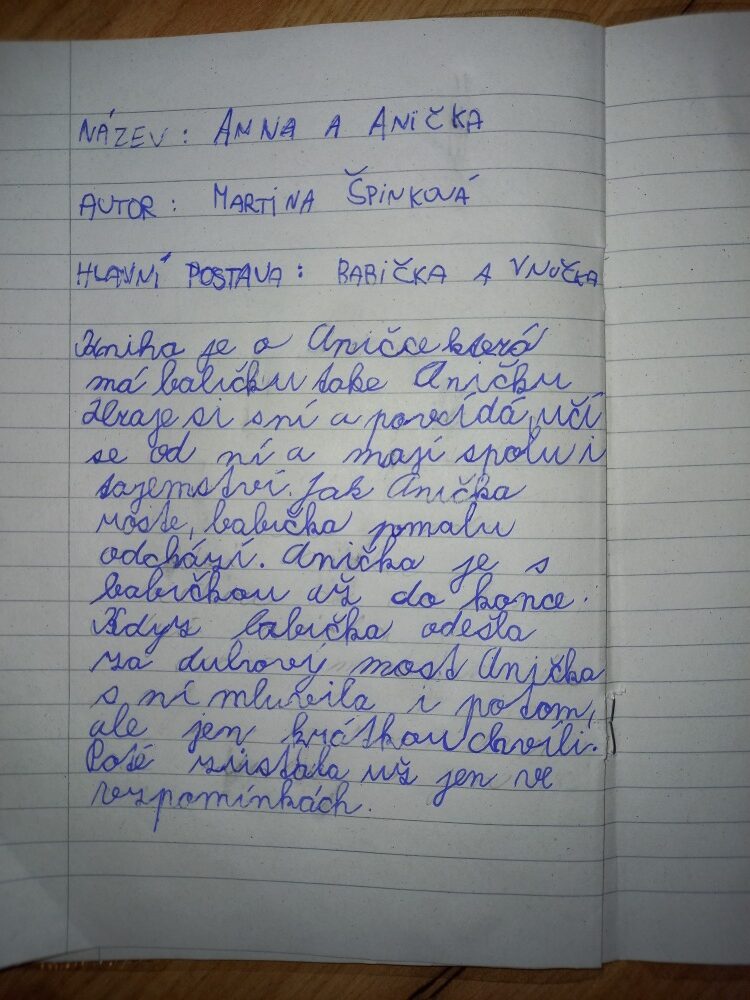 NÁZEV: ANNA A ANIČKA
AUTOR: MARTINA ŠPINKOVÁ
HLAVNÍ POSTAVA: BABIČKA A VNUČKA
Kniha je o Aničce která
má babičku take Aničku
Hraje si sní a povídá, učí
se od ní a mají spolu i
tajemství. Jak Anička
roste, babička pomalu
odchází. Anička je s
babičkou až do konce.
Když babička odešla
za duhový most Anička
s ní mluvila i potom,
ale jen krátkou chvíli.
Poté zůstala už jen ve
vzpomínkách.